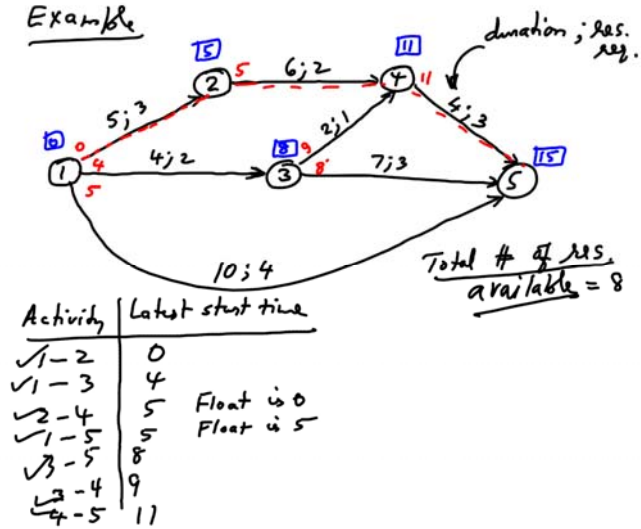 Example
duration; res. req.
5
11
5
6;2
2
4
11
5;3
4;3
0
0
4
1
5
4;2
8
3
9
8
2;1
7;3
15
5
10;4
Total # of res.
available = 8
Activity Latest start time
✓1-2 0
✓1-3 4
✓2-4 5 Float is 0
✓1-5 5 Float is 5
✓3-5 8
✓3-4 9
✓4-5 11